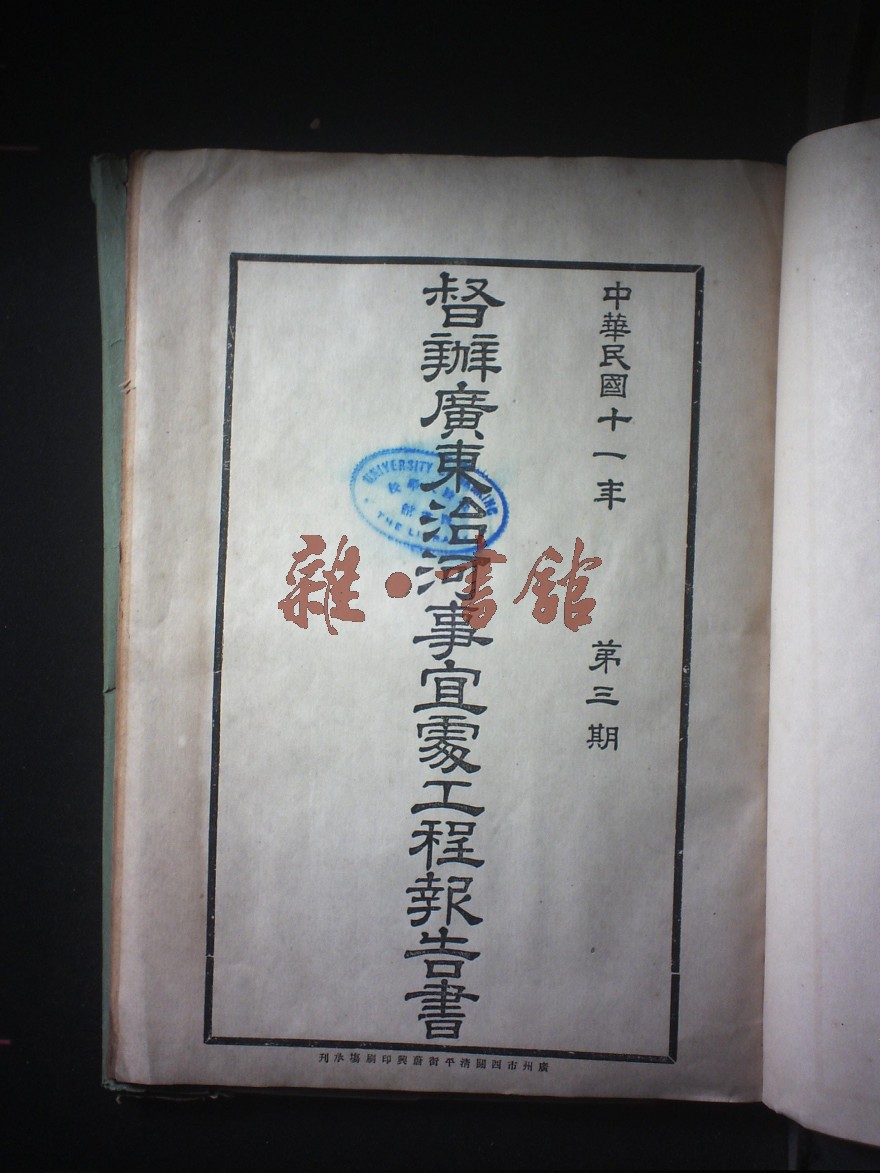 中華民國十一年 第三期
督辦廣東治河事宜處工程報告書
UNIVERSITY
THE LIBRA
雜·書館
廣州市西關清平街蔚興印刷塲承刊